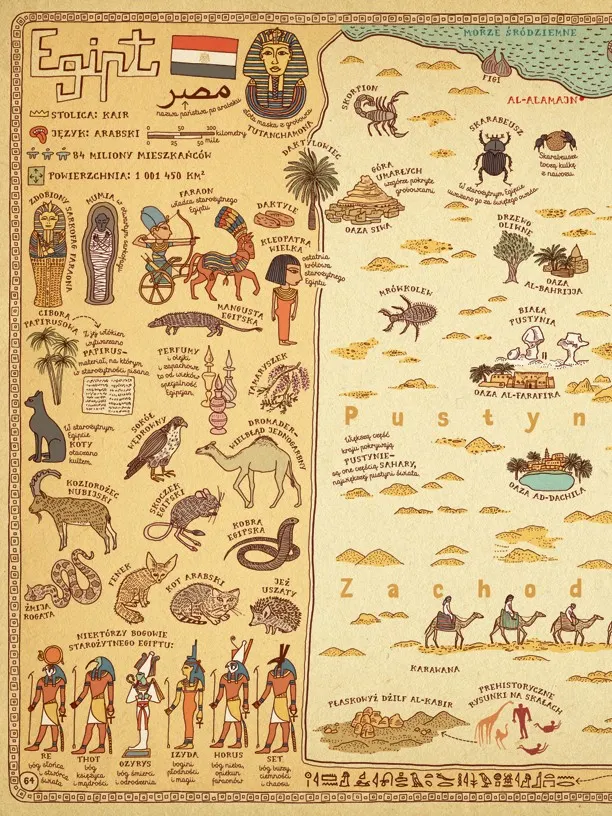 Egipt
مصر
nazwa państwa po arabsku
złota maska z grobowca
TUTANCHAMONA
STOLICA: KAIR
JĘZYK: ARABSKI
0 50 100 kilometry
0 25 50 mile
84 MILIONY MIESZKAŃCÓW
POWIERZCHNIA: 1 001 450 KM²
ZDOBIONY SARKOFAG FARAONA
MUMIA
FARAON
władca starożytnego
Egiptu
DAKTYLE
DAKTYLOWIEC
KLEOPATRA
WIELKA
ostatnia
królowa
starożytnego
Egiptu
MANGUSTA
EGIPSKA
CIBORA
PAPIRUSOWA
Z jej włókien
wytwarzano
PAPIRUS–
materiał, na którym
w starożytności pisano.
PERFUMY
i olejki
zapachowe
to od wieków
specjalność
Egipcjan.
TAMARYSZEK
W starożytnym
Egipcie
KOTY
otaczano
kultem.
SOKÓŁ
WĘDROWNY
DROMADER–
WIELBŁĄD JEDNOGARBNY
KOZIOROŻEC
NUBIJSKI
SKOCZEK
EGIPSKI
KOBRA
EGIPSKA
ŻMIJA
ROGATA
FENEK
KOT ARABSKI
JEŻ
USZATY
NIEKTÓRZY BOGOWIE
STAROŻYTNEGO EGIPTU:
RE
bóg słońca,
stwórca
świata
THOT
bóg
księżyca
i mądrości
OZYRYS
bóg śmierci
i odrodzenia
IZYDA
bogini
płodności
i magii
HORUS
bóg nieba,
opiekun
faraonów
SET
bóg burzy,
ciemności
i chaosu
64
MORZE ŚRÓDZIEMNE
FIGI
AL-ALAMAJN
SKORPION
SKARABEUSZ
W starożytnym Egipcie
uważano go za świętego owada.
Skarabeusze
toczą kulkę
z nawozu.
GÓRA
UMARŁYCH
wzgórze pokryte
grobowcami
OAZA SIWA
DRZEWO
OLIWNE
OAZA
AL-BAHRIJJA
MRÓWKOLEW
BIAŁA
PUSTYNIA
OAZA AL-FARAFIRA
Pustyn
Większą część
kraju pokrywają
PUSTYNIE–
są one częścią SAHARY,
największej pustyni świata.
OAZA AD-DACHILA
Zachod
KARAWANA
PŁASKOWYŻ DŻILF AL-KABIR
PREHISTORYCZNE
RYSUNKI NA SKAŁACH